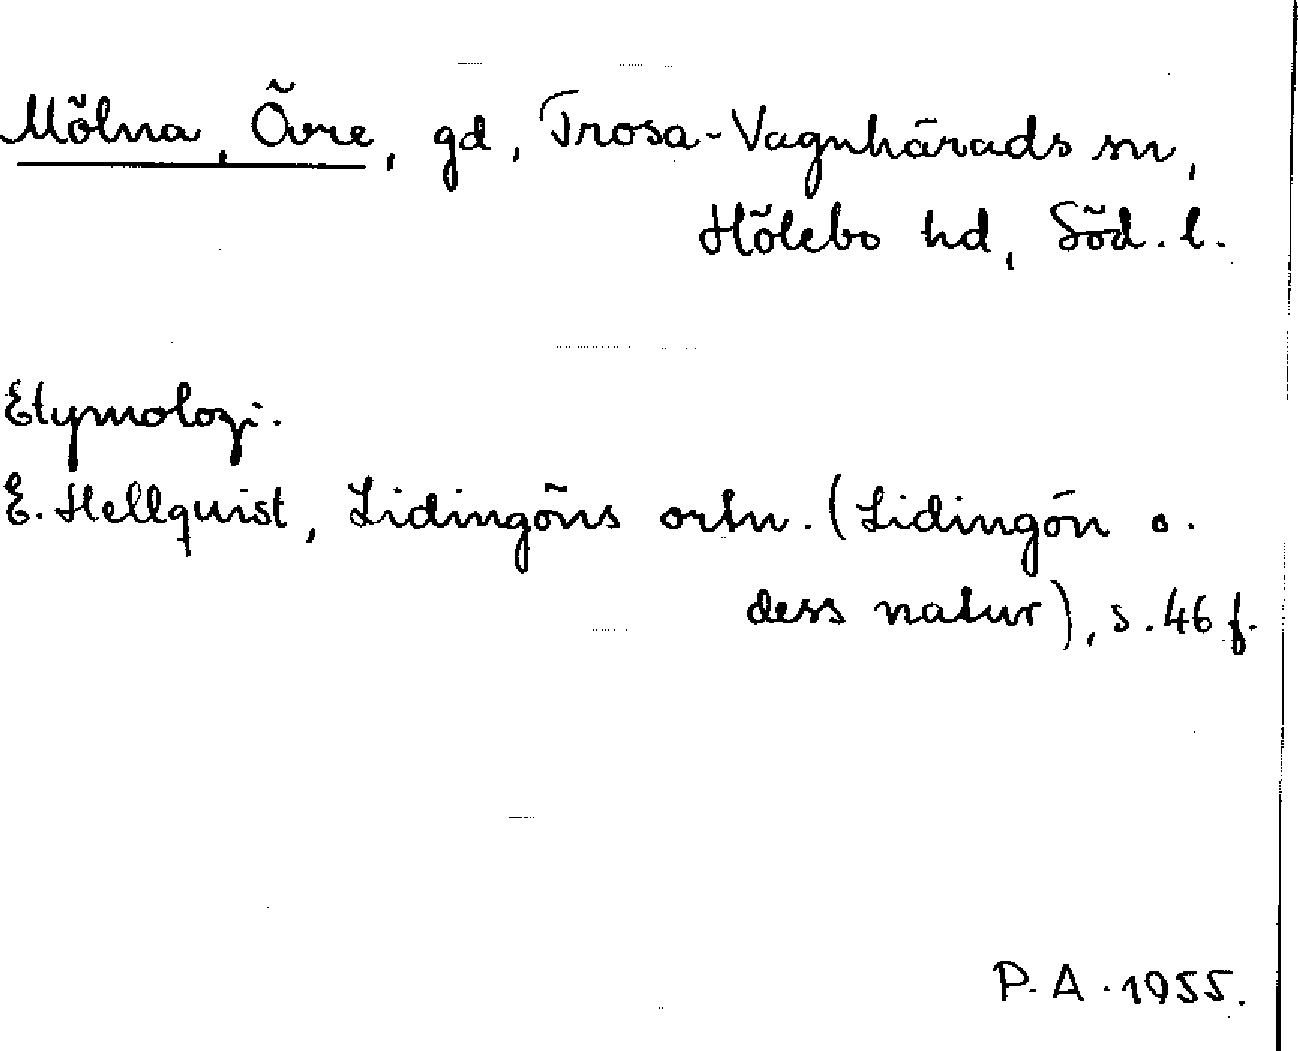 Mölna, Övre, gd, Trosa-Vagnhärads sn,
Hölebo hd, Söd. l.
Etymologi.
E. Hellquist, Lidingöns ortn. (Lidingön o.
dess natur), s. 46 f.
P. A. 1955.